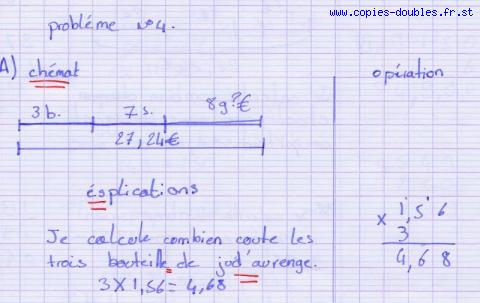 www.copies-doubles.fr.st
problème n°4.
A) chémat
opération
3b. 7s. 8g?€
27,24€
ésplications
Je calcule combien coute les
trois bouteille de jud'aurenge.
3 X 1,56 = 4,68
x 1,56
3
4,68